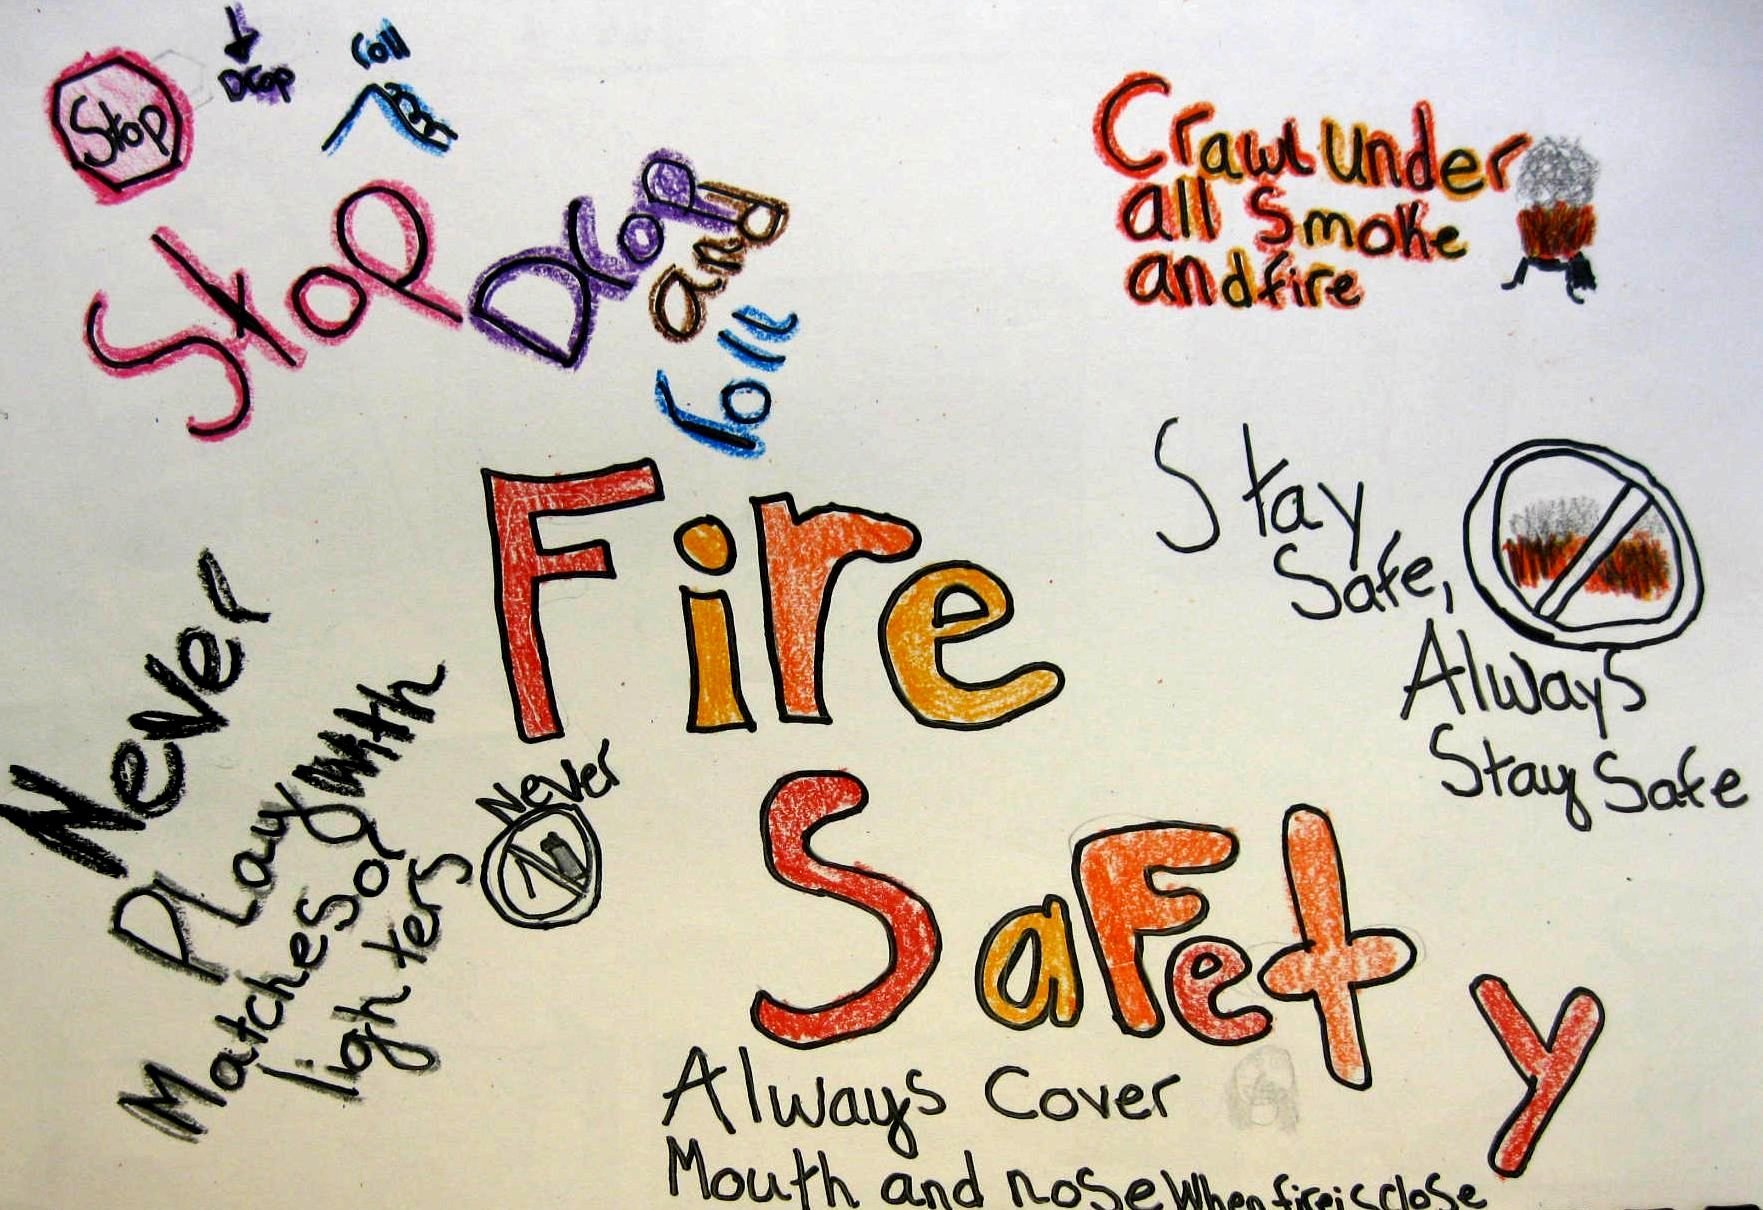 Stop
Drop
roll
Stop Drop and roll
Crawl under
all Smoke
and fire
Stay
Safe,
Always
Stay Safe
Fire
Safety
Never
Play with
Matches or
lighters
Never
Always Cover
Mouth and nose When fire is close